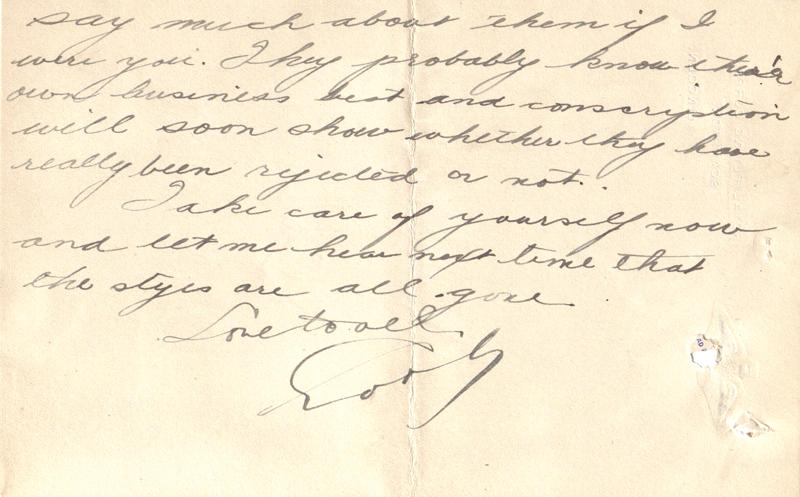 say much about them if I
were you. They probably know their
own business best and conscription
will soon show whether they have
really been rejected or not.
Take care of yourself now
and let me hear next time that
the styes are all gone
Love to all